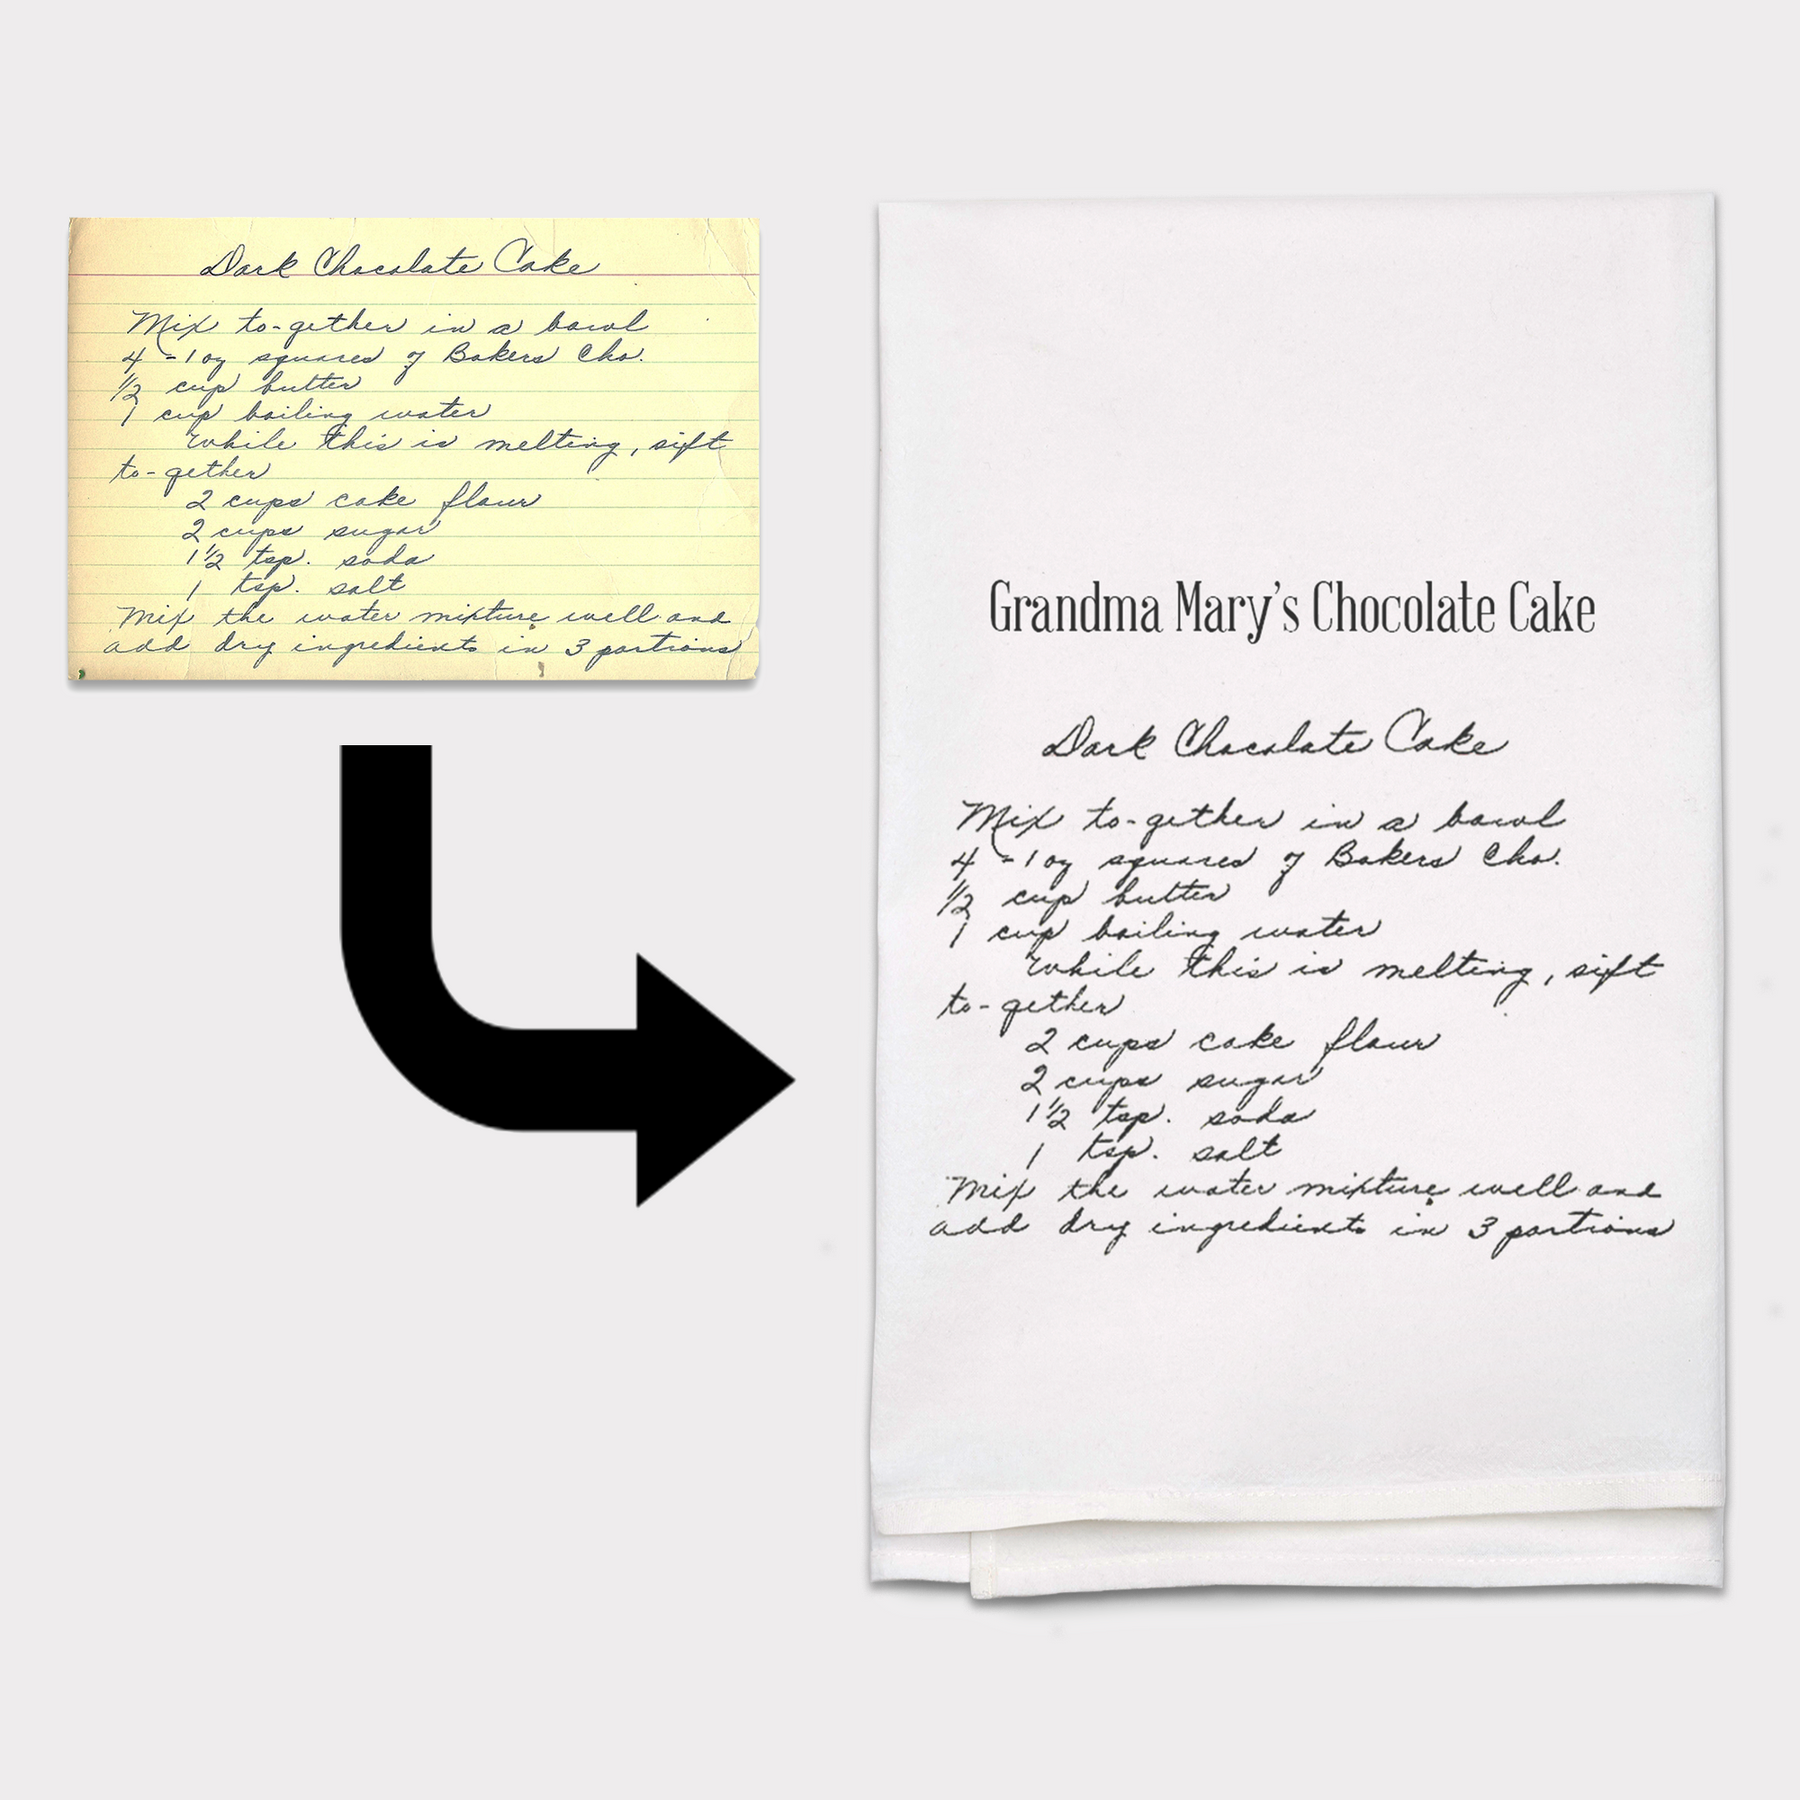 Dark Chocolate Cake
Mix to-gether in a bowl
4 - 1 oz squares of Bakers Cho.
1/2 cup butter
1 cup boiling water
While this is melting, sift
to-gether
2 cups cake flour
2 cups sugar
1 1/2 tsp. soda
1 tsp. salt
Mix the water mixture well and
add dry ingredients in 3 portions
Grandma Mary's Chocolate Cake
Dark Chocolate Cake
Mix to-gether in a bowl
4 - 1 oz squares of Bakers Cho.
1/2 cup butter
1 cup boiling water
While this is melting, sift
to-gether
2 cups cake flour
2 cups sugar
1 1/2 tsp. soda
1 tsp. salt
Mix the water mixture well and
add dry ingredients in 3 portions